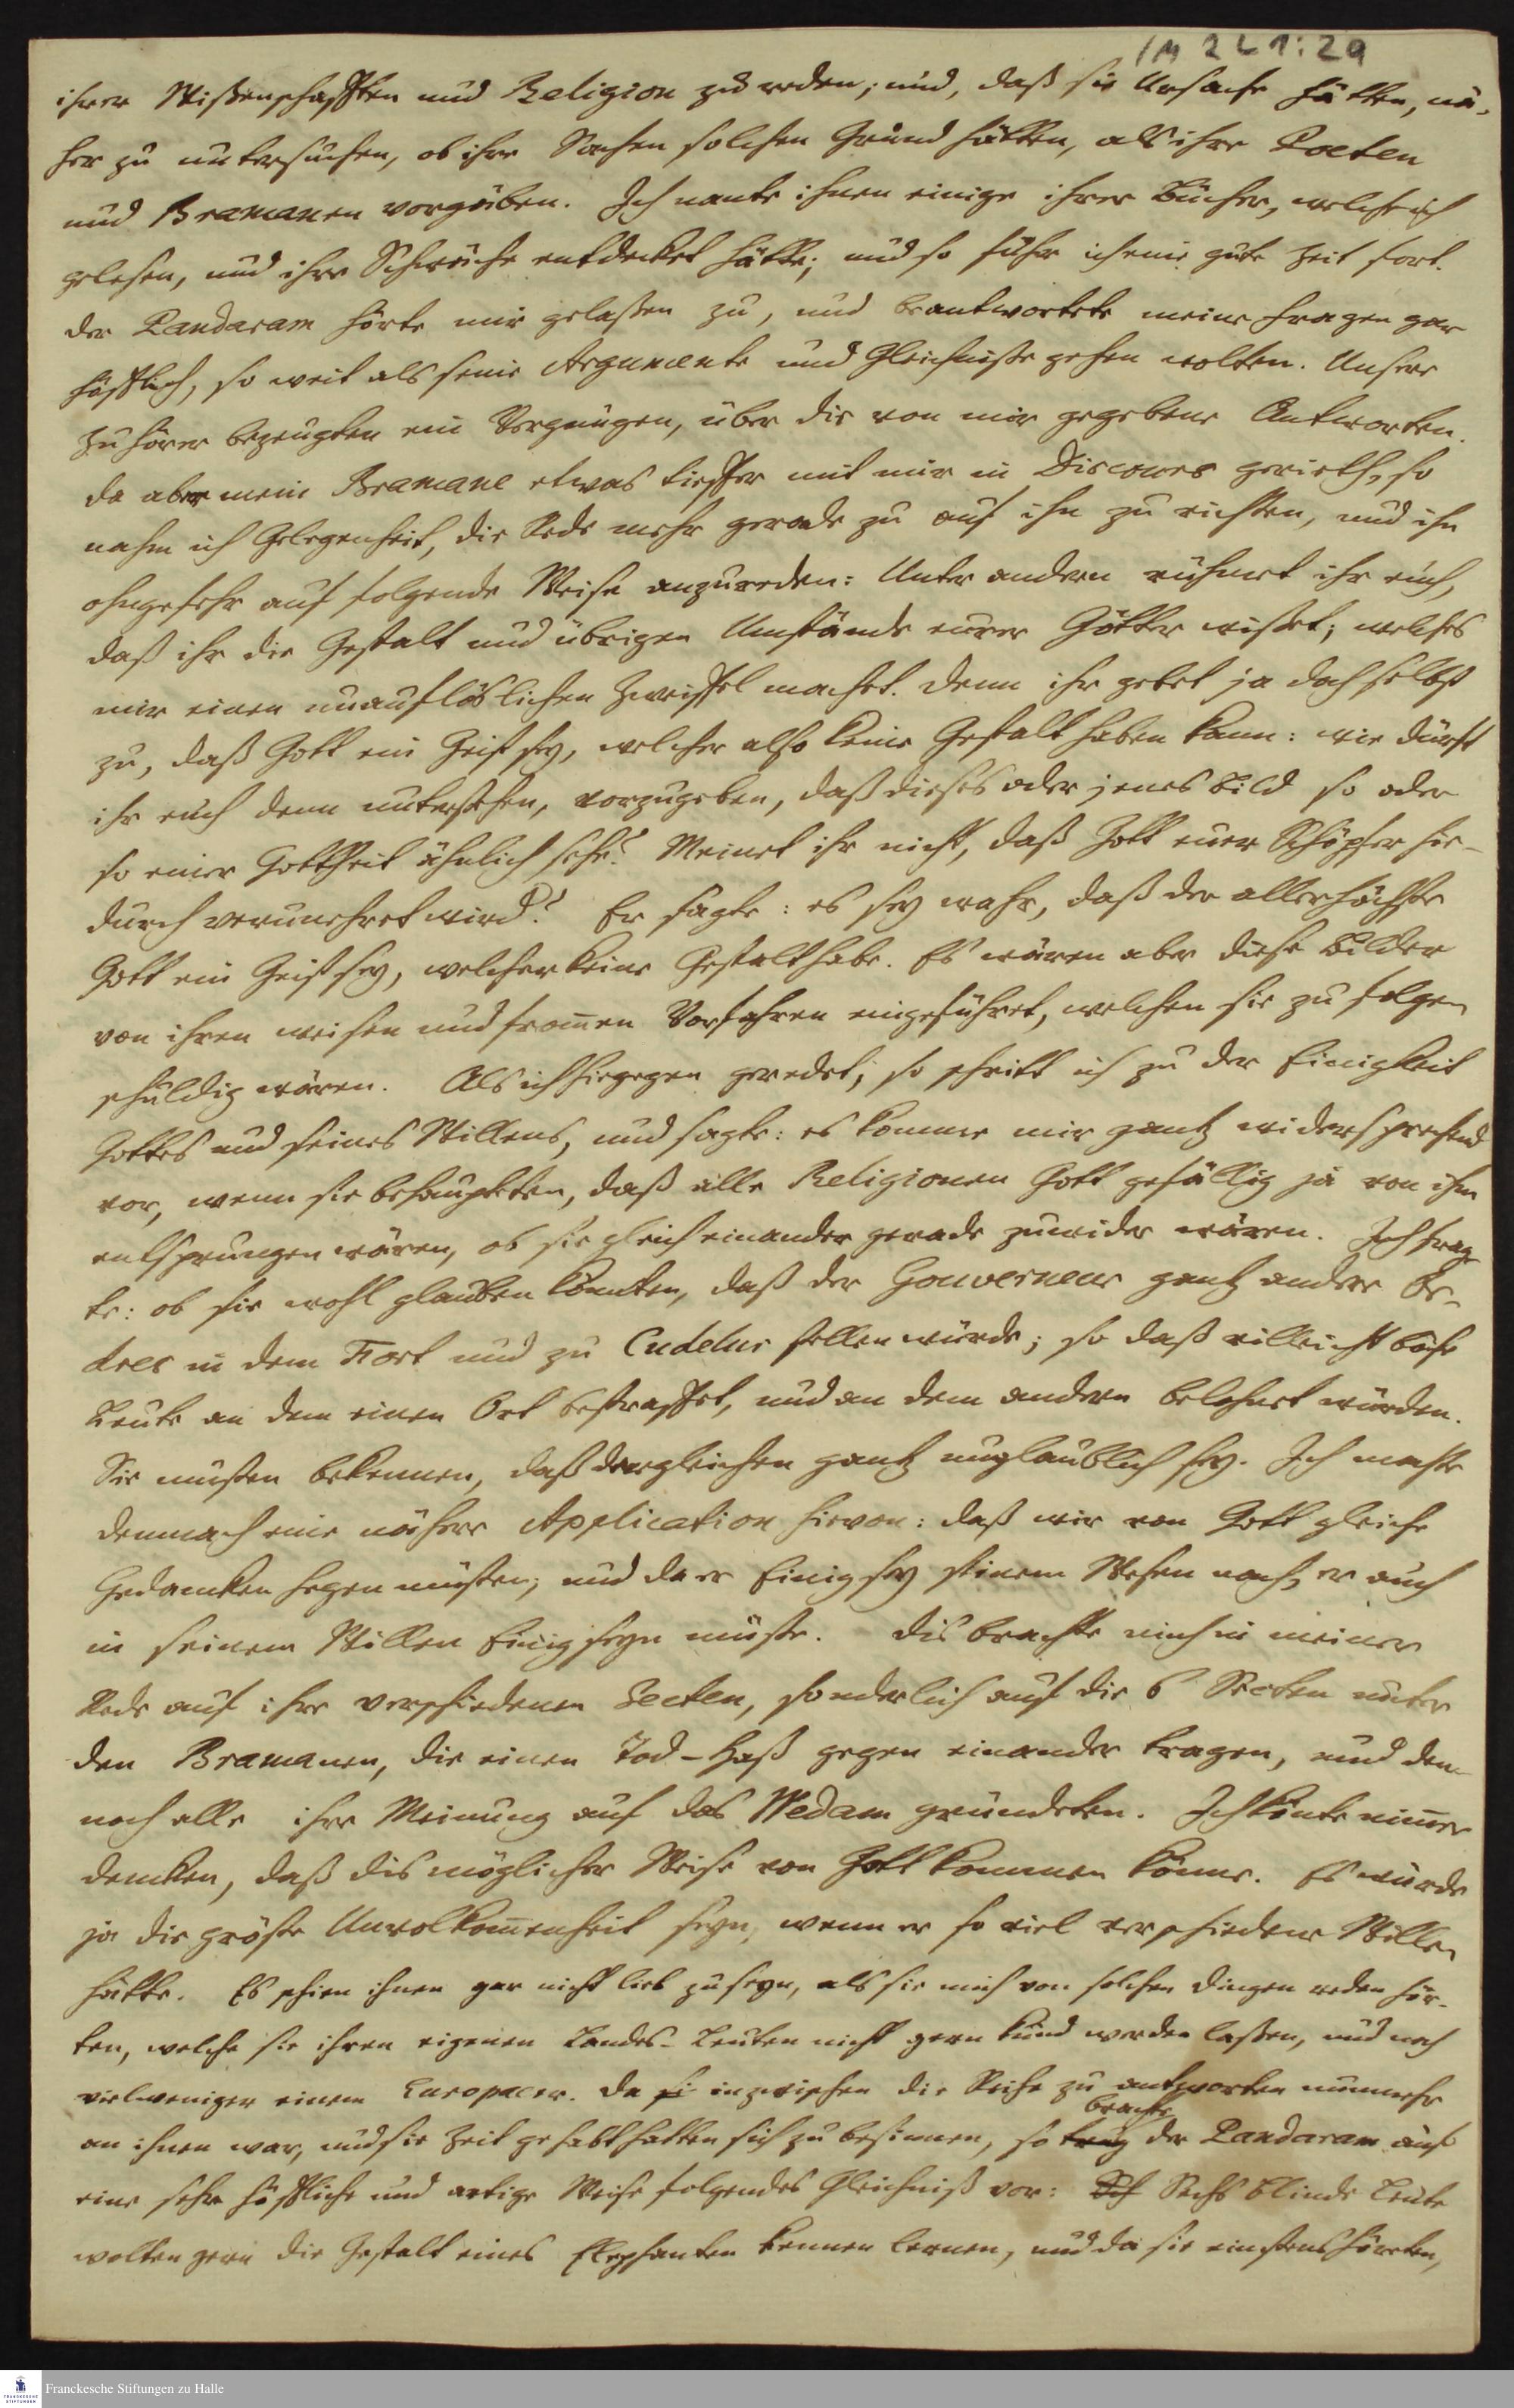 1M 2 L 1:29
ihrer Wißenschafften und Religion zu reden; und, daß sie Ursache hätten, nä-
her zu untersuchen, ob ihre Sachen solchen Grund hätten, als ihre Poeten
und Bramanen vorgäben. Ich nante ihnen einige ihrer Bücher, welche ich
gelesen, und ihre Schwäche entdecket hätte; und so fuhr ich eine gute Zeit fort.
Der Pandaram hörte mir gelaßen zu, und beantwortete meine Fragen gar
höfflich, so weit als seine Argumente und Gleichniße gehen wolten. Unsere
Zuhörer bezeugten ein Vergnügen, über die von mir gegebene Antworten.
Da aber mein Bramane etwas tieffer mit mir in Discours gerieth, so
nahm ich Gelegenheit, die Rede mehr gerade zu auf ihn zu richten, und ihn
ohngefehr auf folgende Weise anzureden: Unter andern rühmet ihr euch,
daß ihr die Gestalt und übrigen Umstände eurer Götter wißet; welches
mir einen unauflöslichen Zweiffel machet. Denn ihr gebet ja doch selbst
zu, daß Gott ein Geist sey, welcher also keine Gestalt haben kann: wie dürft
ihr euch denn unterstehen, vorzugeben, daß dieses oder jenes Bild so oder
so einer Gottheit ähnlich sehe? Meinet ihr nicht, daß Gott euer Schöpfer hie-
durch verunehret wird? Er sagte: es sey wahr, daß der allerhöchste
Gott ein Geist sey, welcher keine Gestalt habe. Es wären aber diese Bilder
von ihren weisen und from̄en Vorfahren eingeführet, welchen sie zu folgen
schuldig wären. Als ich hiegegen geredet; so schritt ich zu der Einigkeit
Gottes und seines Willens, und sagte: es komme mir gantz widersprechend
vor, wenn sie behaupteten, daß alle Religionen Gott gefällig ja von ihm
entsprungen wären, ob sie gleich einander gerade zuwider wären. Ich frag-
te: ob sie wohl glauben könnten, daß der Gouverneur gantz andere Or-
dres in dem Fort und zu Cudelur stellen würde; so daß villeicht böse
Leute an dem einen Ort bestraffet, und an dem andern belohnet würden.
Sie musten bekennen, daß dergleichen gantz unglaublich sey. Ich machte
demnach eine nähere Application hievon: daß wir von Gott gleiche
Gedancken hegen müsten; und da er Einig sey seinem Wesen nach, er auch
in seinem Willen Einig seyn müste. Dis brachte mich in meiner
Rede auf ihre verschiedenen Secten, sonderlich auf die 6 Secten unter
den Bramanen, die einen Tod-Haß gegen einander tragen, und den-
noch alle ihre Meinung auf das Wedam gründeten. Ich könte nim̄er
dencken, daß dis möglicher Weise von Gott kommen könne. Es würde
ja die gröste Unvolkom̄enheit seyn, wenn er so viel verschiedene Willen
hätte. Es schien ihnen gar nicht lieb zu seyn, als sie mich von solchen Dingen reden hör-
ten, welche sie ihren eigenen Landes-Leuten nicht gern kund werden laßen, und noch
vielweniger einem Europaeer. Da inzwischen die Reihe zu antworten nunmehr
an ihnen war, und sie Zeit gehabt hatten sich zu besinnen, so brachte der Pandaram auf
eine sehr höffliche und artige Weise folgendes Gleichniß vor: Sechs blinde Leute
wolten gern die Gestalt eines Elephanten kennen lernen, und da sie einstens höreten,
Franckesche Stiftungen zu Halle